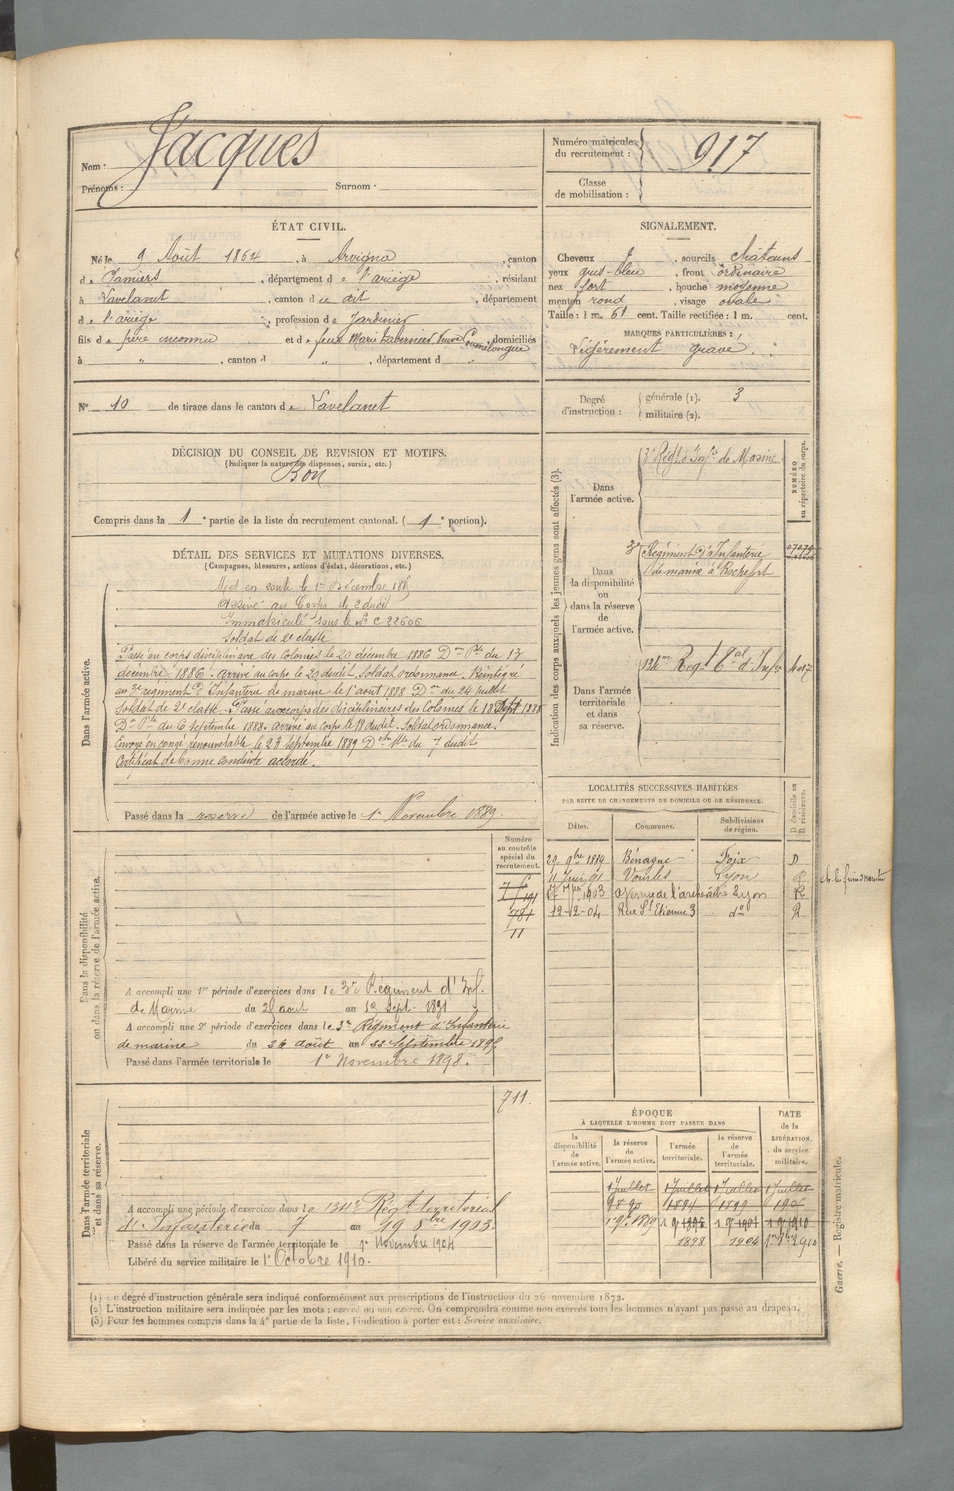 Nom : Jacques
Prénoms : Surnom :
Numéro matricule du recrutement : 917
Classe de mobilisation :
ÉTAT CIVIL.
Né le 9 Août 1864, à Arvigna, canton
de Pamiers, département de l'ariège, résidant
à Lavelanet, canton de dit, département
de l'ariège, profession de Jardinier
fils de père inconnu et de feue Marie Tabernier Veuve, domiciliés
à " , canton d " , département d "
SIGNALEMENT.
Cheveux, sourcils châtains
yeux gris-bleu, front ordinaire
nez fort, bouche moyenne
menton rond, visage ovale
Taille : 1 m. 61 cent. Taille rectifiée : 1 m. cent.
MARQUES PARTICULIÈRES :
Légèrement gravé.
N° 10 de tirage dans le canton de Lavelanet
Degré d'instruction : générale (1). 3
militaire (2).
DÉCISION DU CONSEIL DE REVISION ET MOTIFS.
(Indiquer la nature des dispenses, sursis, etc.)
Bon
Compris dans la 1e partie de la liste du recrutement cantonal. (1e portion).
DÉTAIL DES SERVICES ET MUTATIONS DIVERSES.
(Campagnes, blessures, actions d'éclat, décorations, etc.)
Dans l'armée active.
Mis en route le 1er Décembre 1885
Arrivé au Corps le 2 dudit
Immatriculé sous le N° C 22606
Soldat de 2e classe
Passé au corps disciplinaire des Colonies le 20 décembre 1886 Don Plle du 13
décembre 1886. Arrivé au corps le 20 dudit. Soldat ordonnance. Réintégré
au 3e regiment d'Infanterie de marine le 1er août 1888 Don du 24 juillet
Soldat de 2e classe. Passé aux corps des disciplinaires des Colonies le 18 Sept 1888
Don Plle du 6 Septembre 1888. Arrivé au corps le 18 dudit. Soldat ordonnance.
Envoyé en congé renouvelable le 23 Septembre 1889 Don Mlle du 7 dudit
Certificat de bonne conduite accordé.
Passé dans la reserve de l'armée active le 1er Novembre 1889.
Indication des corps auxquels les jeunes gens sont affectés (3).
NUMÉRO au répertoire du corps.
Dans l'armée active.
3e Régt d'Infie de Marine
Dans la disponibilité ou dans la réserve de l'armée active.
3e Régiment d'Infanterie
de marine à Rochefort
Dans l'armée territoriale et dans sa réserve.
134me Régt tal d'Infie
LOCALITÉS SUCCESSIVES HABITÉES
PAR SUITE DE CHANGEMENTS DE DOMICILE OU DE RÉSIDENCE.
Dates. Communes. Subdivisions de région. D domicile ou R résidence.
29 9bre 1889 Bénagues Foix D
11 Juin 91 Vourles Lyon R
1903 Avenue de l'archevêché Lyon R
12-12-04 Rue St Etienne 3 do R
Numéro au contrôle spécial du recrutement.
Dans la disponibilité ou dans la réserve de l'armée active.
A accompli une 1re période d'exercices dans le 3e Régiment d'Inf.
de Marine du 20 août au Sept. 1891
A accompli une 2e période d'exercices dans le 3e Régiment d'Infanterie
de marine du 26 août au 22 Septembre 1895
Passé dans l'armée territoriale le 1er Novembre 1898.
711.
Dans l'armée territoriale et dans sa réserve.
A accompli une période d'exercices dans le 134e Régt territorial
d'Infanterie du 7 au 19 8bre 1903.
Passé dans la réserve de l'armée territoriale le 1er Novembre 1904
Libéré du service militaire le 1er Octobre 1910.
ÉPOQUE
À LAQUELLE L'HOMME DOIT PASSER DANS
la disponibilité de l'armée active. la réserve de l'armée active. l'armée territoriale. la réserve de l'armée territoriale.
DATE de la LIBÉRATION du service militaire.
1 Juillet 1 Juillet 1 Juillet 1 Juillet
1898 1904
(1) Le degré d'instruction générale sera indiqué conformément aux prescriptions de l'instruction du 26 novembre 1872.
(2) L'instruction militaire sera indiquée par les mots : exercé ou non exercé. On comprendra comme non exercés tous les hommes n'ayant pas passé au drapeau.
(3) Pour les hommes compris dans la 4e partie de la liste, l'indication à porter est : Service auxiliaire.
Guerre. — Registre matricule.